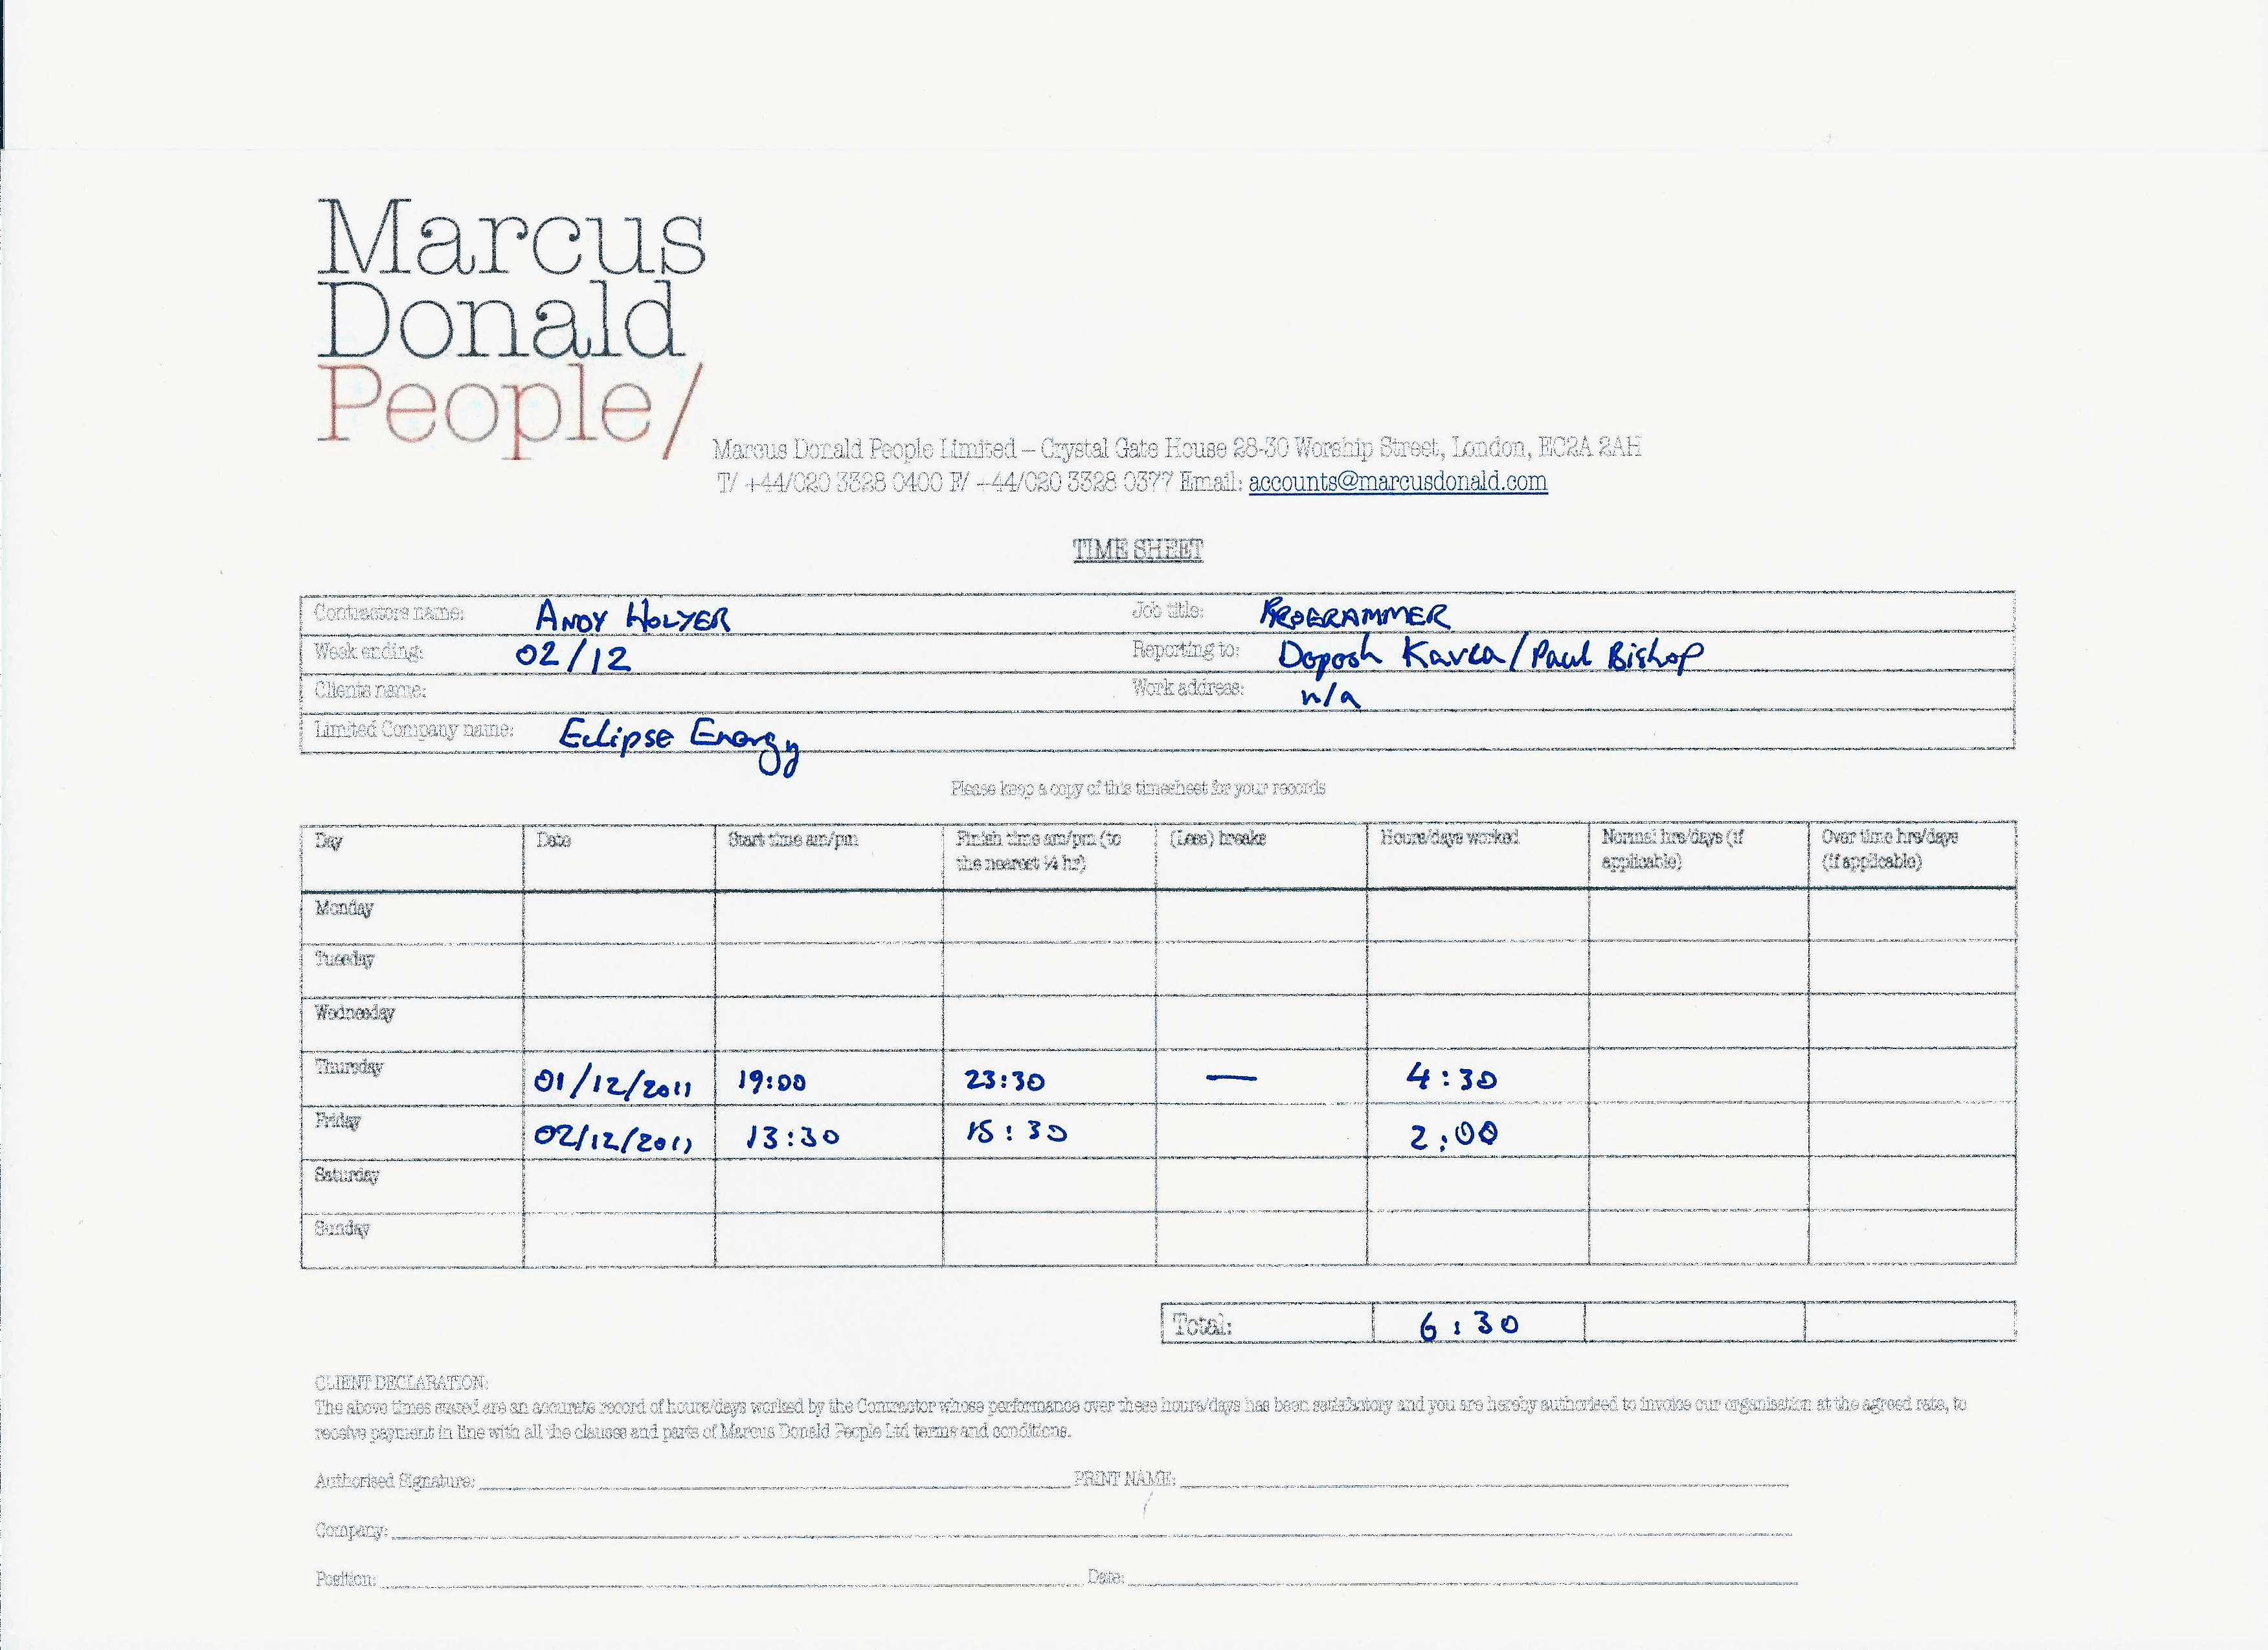 Marcus
Donald
People/
Marcus Donald People Limited – Crystal Gate House 28-30 Worship Street, London, EC2A 2AH
T/ +44/020 3328 0400 F/ +44/020 3328 0377 Email: accounts@marcusdonald.com
TIME SHEET
Contractors name: ANDY HOLYER Job title: PROGRAMMER
Week ending: 02/12 Reporting to: Paul Bishop
Clients name: Work address: n/a
Limited Company name: Eclipse Energy
Please keep a copy of this timesheet for your records
Day Date Start time am/pm Finish time am/pm (to the nearest ¼ hr) (Less) breaks Hours/days worked Normal hrs/days (if applicable) Over time hrs/days (if applicable)
Monday
Tuesday
Wednesday
Thursday 01/12/2011 19:00 23:30 — 4:30
Friday 02/12/2011 13:30 15:30 2:00
Saturday
Sunday
Total: 6:30
CLIENT DECLARATION:
The above times stated are an accurate record of hours/days worked by the Contractor whose performance over these hours/days has been satisfactory and you are hereby authorised to invoice our organisation at the agreed rate, to
receive payment in line with all the clauses and parts of Marcus Donald People Ltd terms and conditions.
Authorised Signature: PRINT NAME:
Company:
Position: Date: